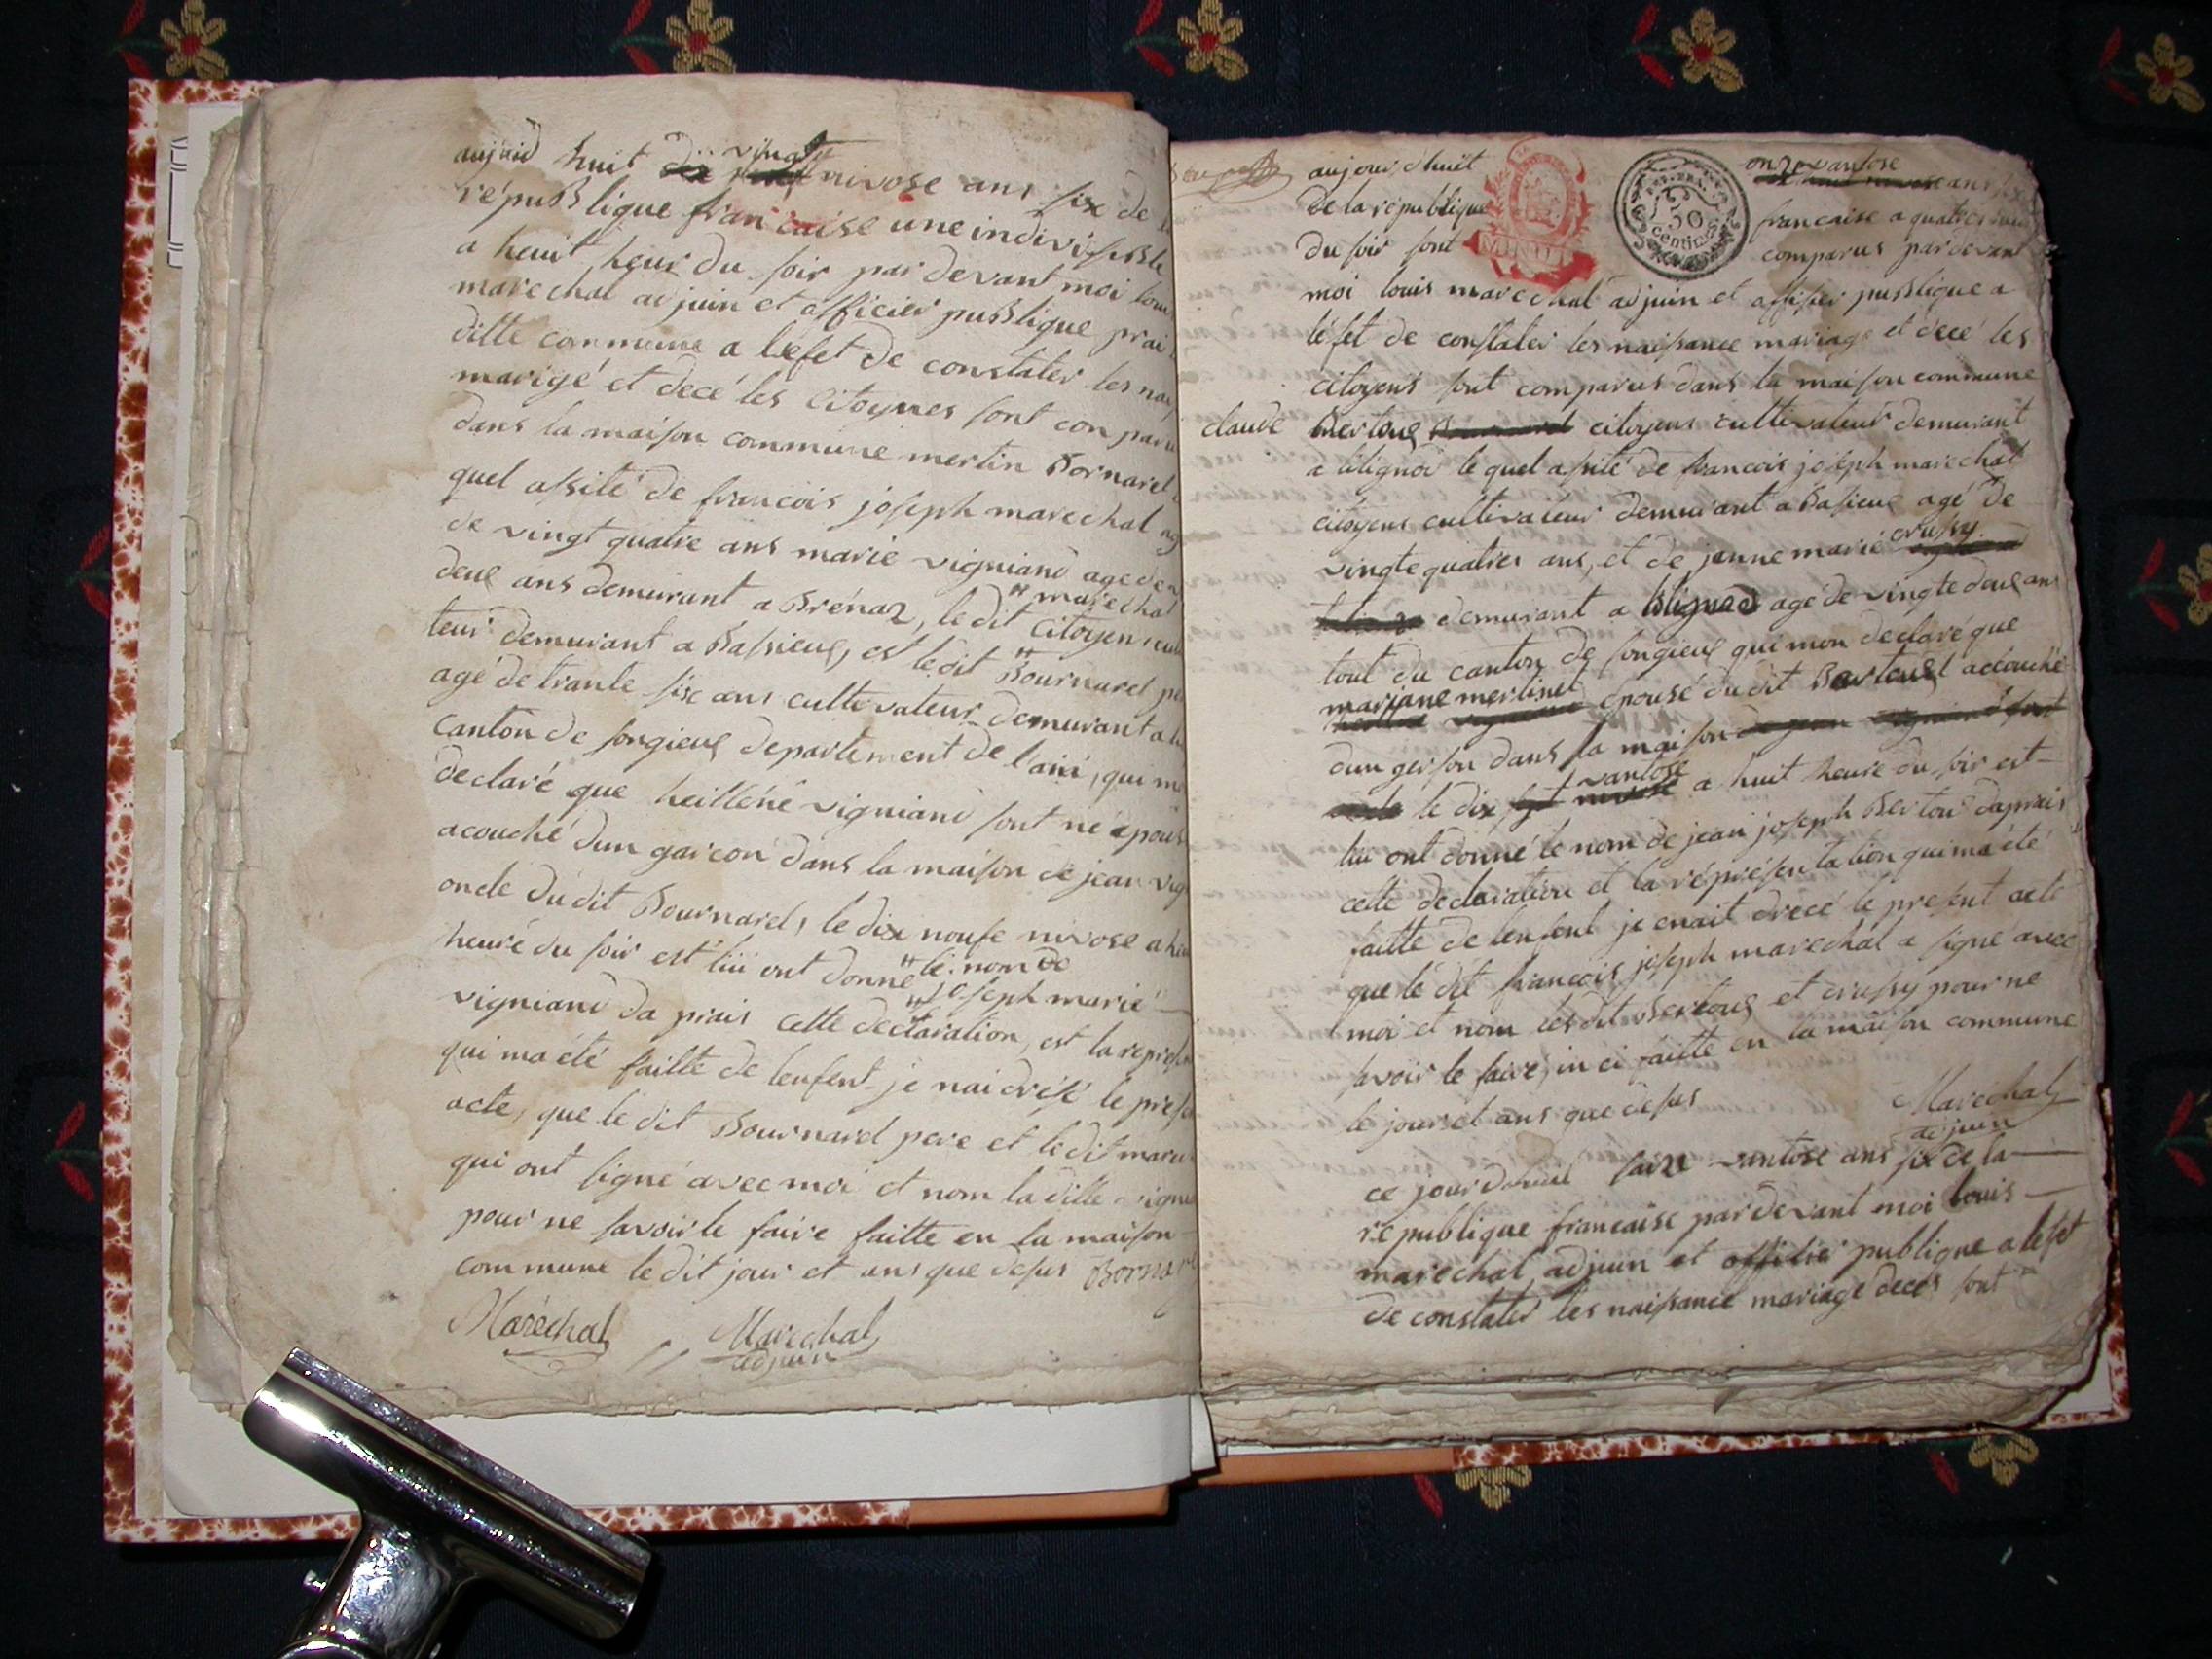 aujuid huit vingt nivose ans six de
républigue francaise une indivissible
a heuit heur du soir par devant moi
marechal adjuin et officier publique
ditte commune a lefet de constater les
marigé et decé les citoynes sont con paru
dans la maison commune mertin Bornarel
quel assité de francois joseph marechal
de vingt quatre ans marie vigniand age de
deux ans demurant a Brénaz, le dit marechal citoyen
teur demurant a Passieux, est le dit Bournarel
agé de trante six ans cultevateur demurant a
canton de songieux departement de l'ain, qui
declaré que heilléne vigniand sont né epous
acouché d'un garcon dans la maison de jean
oncle du dit Bournarel, le dix noufe nivose a
heuré du soir est lui ont donné le nom de joseph marie
vigniand da prais cette declaration, est la
qui ma été faitte de lenfent je nai drésé le
acte, que le dit Bournarel pere et le dit
qui ont signé avec moi et nom la ditte
pour ne savoir le faire faitte en la maison
commune le dit jour et ans que desus
Maréchal Marechal
adjuin
aujour d'huit onze vantose ans
de la république francaise a quatre
du soir sont comparus par devant
MINUT
REP. FRA.
50
centim.
moi louis marechal adjuin et offisier publique a
léfet de constater les naissance mariage et décé les
citoyens sont comparus dans la maison commune
claude Bertoux citoyens cultivateur demurant
a lilignod le quel assité de francois joseph marechal
citoyens cultivateur demurant a Passieux agé de
vingte quatres ans, et de jenne marie crussy
demurant a lilignod age de vingte deux ans
tout du canton de songieux qui mon declaré que
marjane mertinet épousé du dit Bertoux l accouché
dun gerson dans la maison
le dix vantose a huit heure du soir est
lui ont donné le nom de jean joseph Bertou daprais
cette declaration et la représentation qui ma été
faitte de lenfent je enait drecé le present acte
que lé dit francois joseph marechal a signé avec
moi et nom les dit Bertoux et crussy pour ne
savoir le faire, in ci faitte en la maison commune
le jour et ans que desus Marechal
adjuin
ce jourdhuit saize vantose ans six de la
republique francaise par devant moi louis
marechal adjuin et offisié publique a lefet
de constater les naissance mariage deces sont